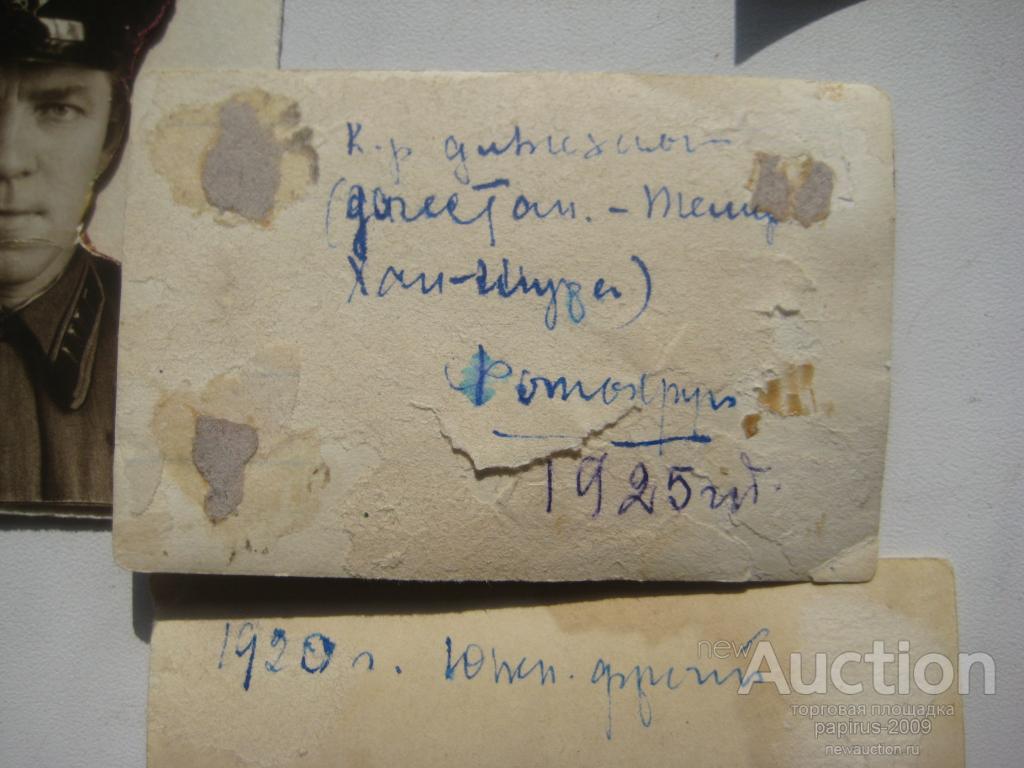 К-р дивизиона
(дагестан. - Темир
Хан-Шура)
1925 год.
1920 г. Южн. фронт
newAuction
торговая площадка
papirus-2009
newauction.ru